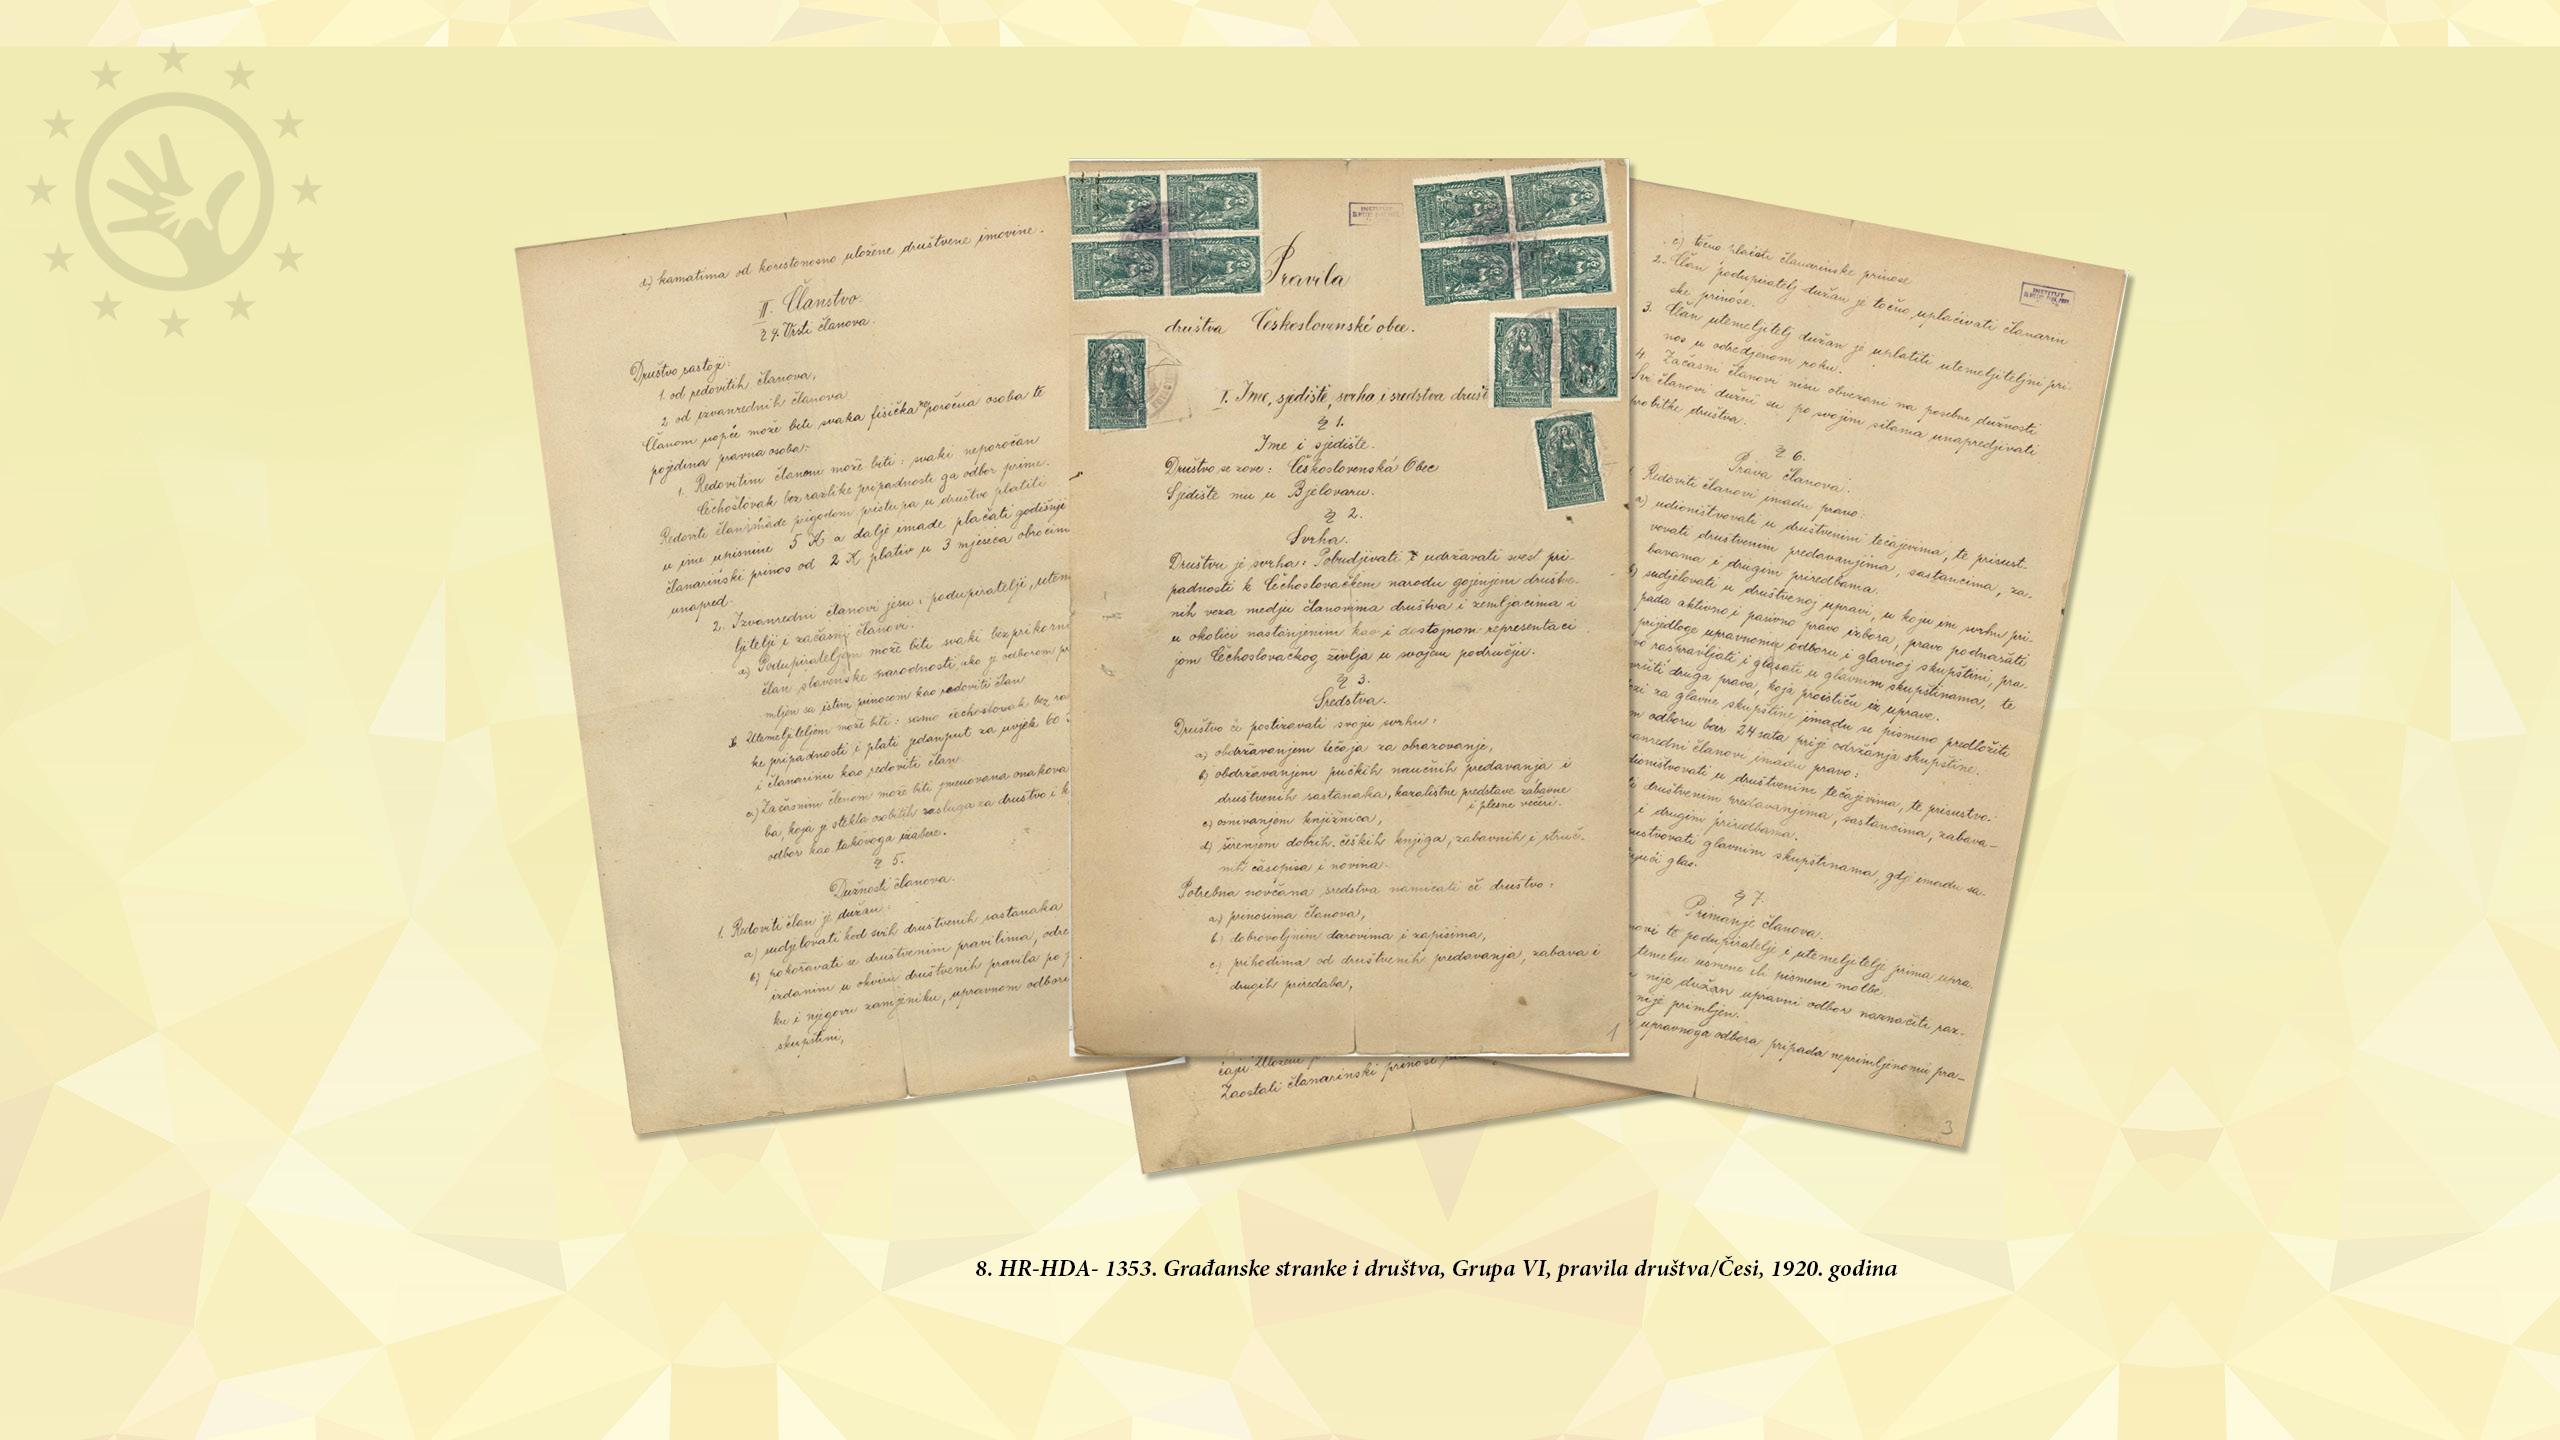 d) kamatima od koristonosno uložene društvene imovine.
II. Članstvo.
§ 4. Vrsti članova.
Društvo sastoji:
1. od redovitih članova,
2. od izvanrednih članova
Članom uopće može biti svaka fisička neporočna osoba te
pojedina pravna osoba:
1. Redovitim članom može biti: svaki neporočan
Čehoslovak bez razlike pripadnosti ga odbor prime.
Redoviti član imade prigodom pristupa u društvo platiti
u ime upisnine 5 K a dalje imade plaćati godišnji
članarinski prinos od 2 K plativ u 3 mjeseca obrocim
unapred.
2. Izvanredni članovi jesu: podupiratelji, utem
ljitelji i začasni članovi.
a) Podupirateljem može biti svaki bezprikorni
član slavenske narodnosti, ako je odborom pr
mljen sa istim prinosom kao redoviti član
b. Utemeljiteljem može biti: samo čechoslovak bez ra
ke pripadnosti i plati jedanput za uvjek 60
i članarinu kao redoviti član.
c) Začasnim članom može biti imenovana onakova
ba, koja je stekla osobitih zasluga za društvo i k
odbor kao takovoga izabere.
§ 5.
Dužnosti članova.
1. Redoviti član je dužan:
a) sudjelovati kod svih društvenih sastanaka
b) pokoravati se društvenim pravilima, odre
izdanim u okviru društvenih pravila po
ku i njegovu zamjeniku, upravnom odboru
skupštini,
INSTITUT
Pravila
društva Československé obce.
I. Ime, sjedište, svrha i sredstva društ
§ 1.
Ime i sjedište.
Društvo se zove: Československá Obec
Sjedište mu u Bjelovaru.
§ 2.
Svrha.
Društvu je svrha: Pobudjivati i udržavati svest pri-
padnosti k Čechoslovačkom narodu gojenjem društve-
nih veza medju članovima društva i zemljacima i
u okolici nastanjenim kao i dostojnom representaci
jom Čechoslovačkog življa u svojem području.
§ 3.
Sredstva.
Društvo će postizavati svoju svrhu:
a) obdržavanjem tečaja za obrazovanje,
b) obdržavanjem pučkih naučnih predavanja i
društvenih sastanaka, kazalištne predstave zabavne
i plesne večeri.
c) osnivanjem knjižnica,
d) širenjem dobrih čeških knjiga, zabavnih i struč-
nih časopisa i novina.
Potrebna novčana sredstva namicati će društvo:
a) prinosima članova,
b) dobrovoljnim darovima i zapisima,
c) prihodima od društvenih predavanja, zabava i
drugih priredaba,
1
Zaostali članarinski prinosi
c) točno plaćati članarinske prinose
2. Član podupiratelj dužan je točno uplaćivati članarin
ske prinose.
3. Član utemeljitelj dužan je uplatiti utemeljiteljni pri-
nos u odredjenom roku.
4. Začasni članovi nisu obvezani na posebne dužnosti
Svi članovi dužni su po svojim silama unapredjivati
probitke društva.
INSTITUT
§ 6.
Prava članova.
Redoviti članovi imadu pravo:
a) udioništvovati u društvenim tečajevima, te prisust-
vovati društvenim predavanjima, sastancima, za-
bavama i drugim priredbama.
b) sudjelovati u društvenoj upravi, u koju im svrhu pri-
pada aktivno i pasivno pravo izbora, pravo podnašati
prijedloge upravnome odboru i glavnoj skupštini, pra-
vo raspravljati i glasati u glavnim skupštinama, te
vršiti druga prava, koja proističu iz uprave.
za glavne skupštine imadu se pismeno predložiti
odboru bar 24 sata prije održanja skupštine.
anredni članovi imadu pravo:
dioništvovati u društvenim tečajevima, te prisustvo-
ti društvenim predavanjima, sastancima, zabava-
i drugim priredbama.
sustvovati glavnim skupštinama, gdje imadu sa-
jući glas.
§ 7.
Primanje članova.
novi te podupiratelje i utemeljitelje prima upra
temelju usmene ili pismene molbe.
nije dužan upravni odbor naznačiti raz-
nije primljen.
upravnoga odbora pripada neprimljenomu pra-
3
8. HR-HDA- 1353. Građanske stranke i društva, Grupa VI, pravila društva/Česi, 1920. godina